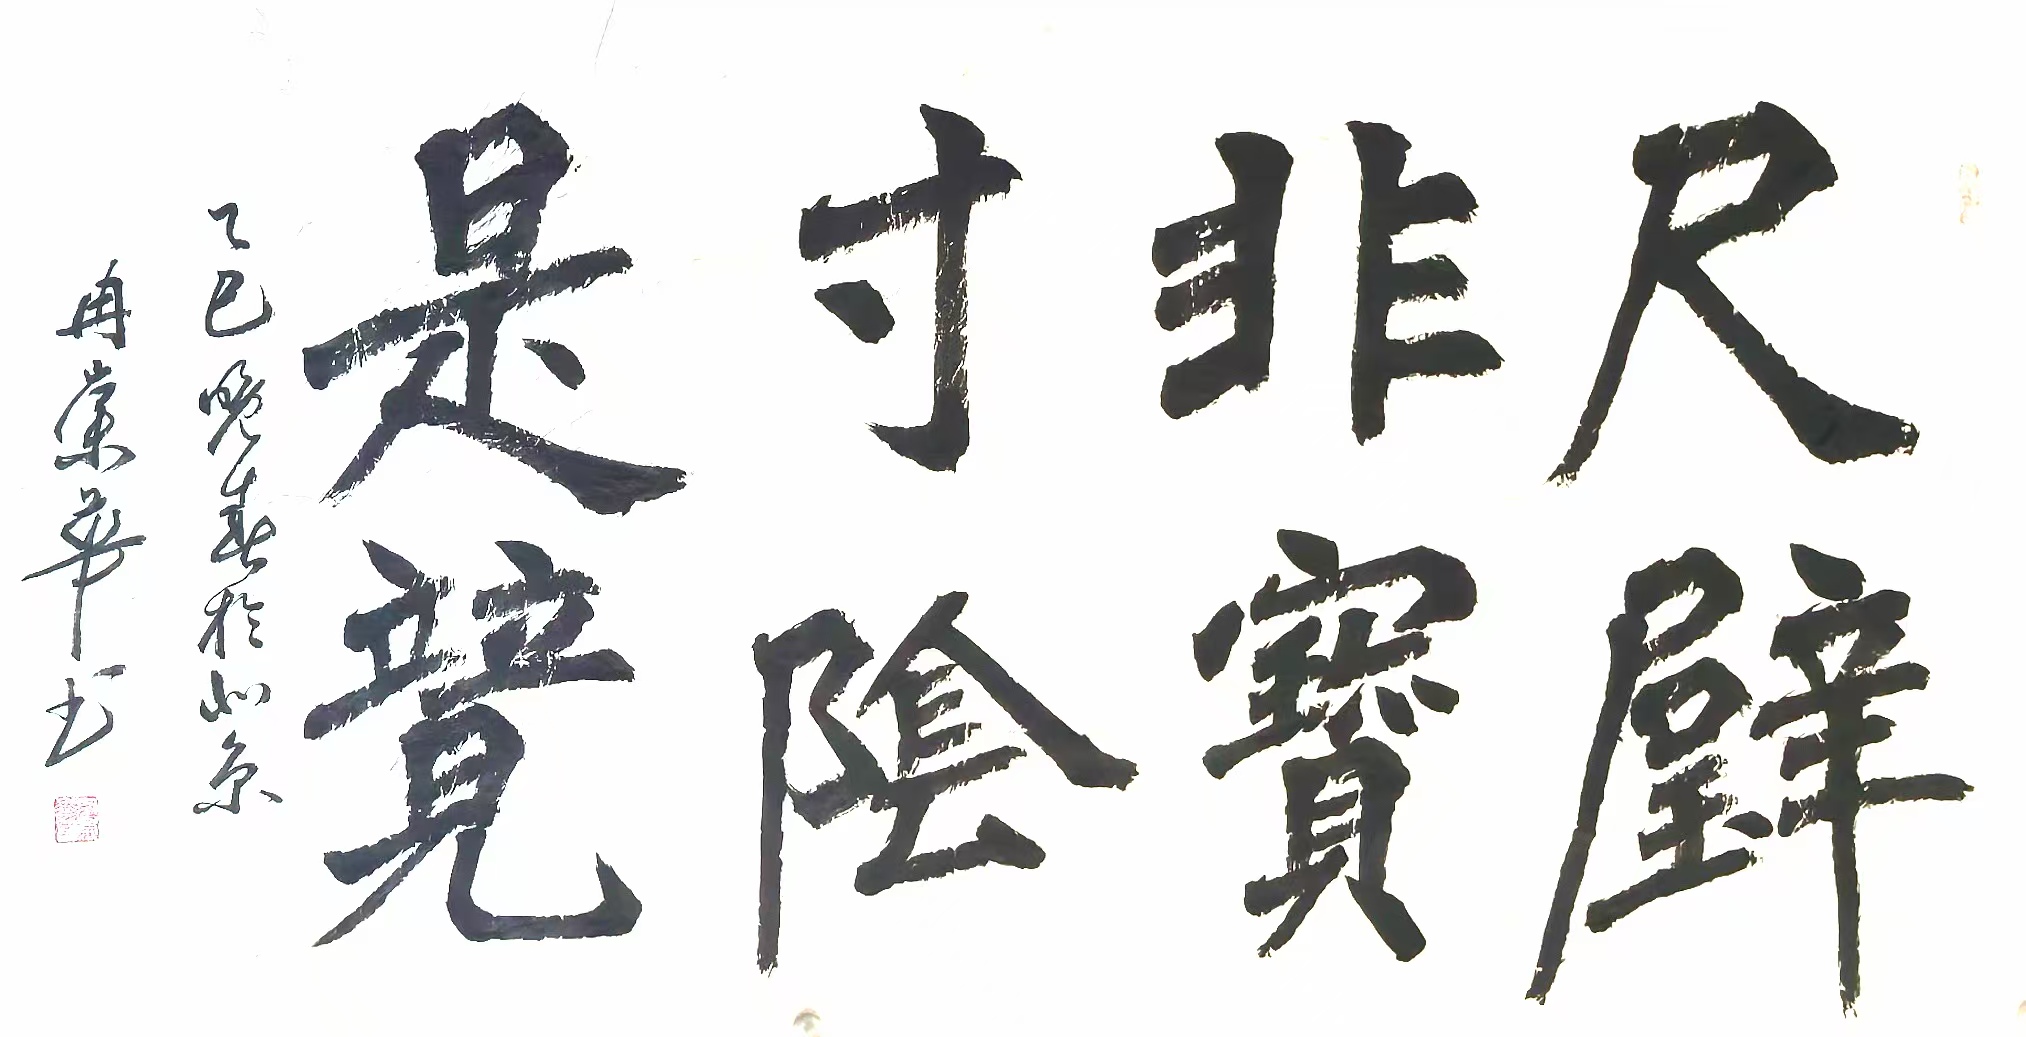 尺璧
非寶
寸陰
是競
乙巳晚春於北京
冉榮華书